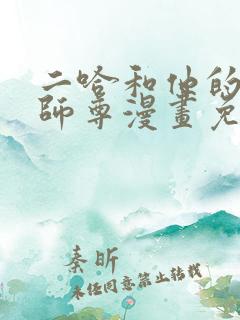 二哈和他的
師尊漫畫免
秦昕
未任同意禁止转载